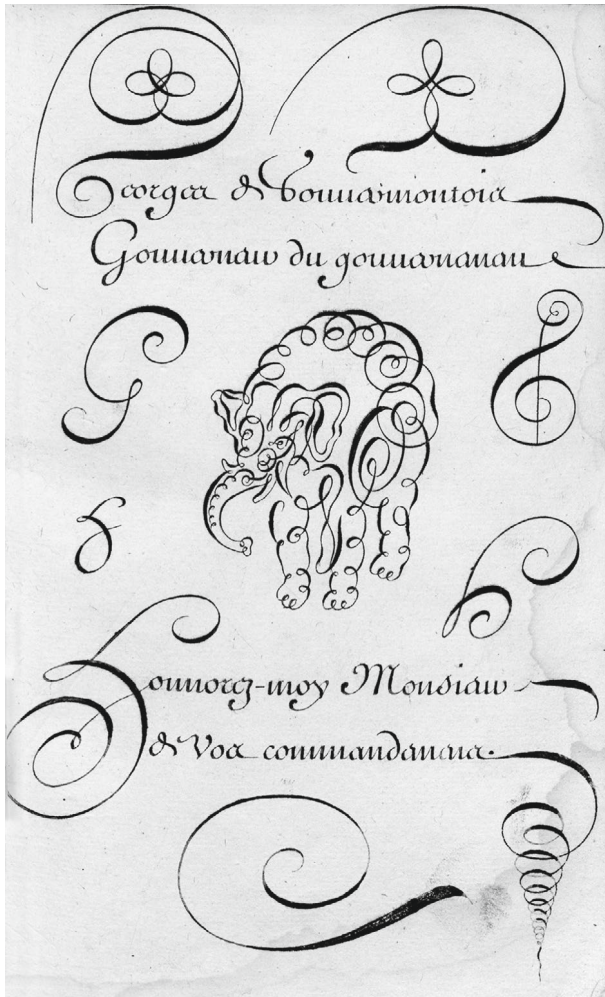 Georges de
Gouuerneur du gouuernement
Honnorez-moy Monsieur
de Vos commandemens.